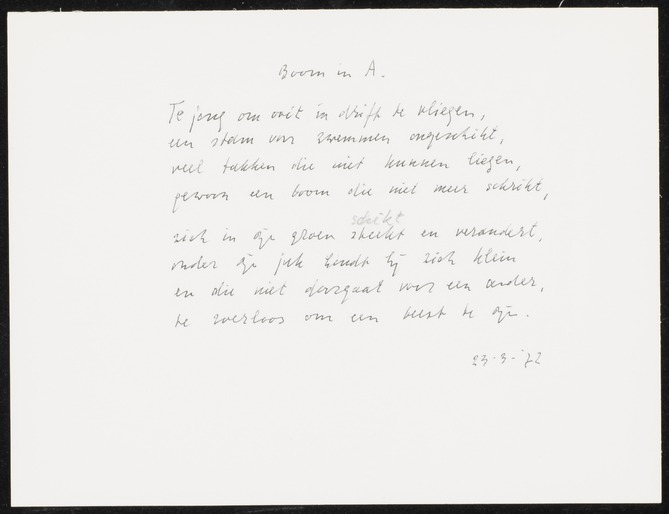 Boom in A.
Te jong om ooit in drift te vliegen,
een stam voor zwemmen ongeschikt,
veel takken die niet kunnen liegen,
gewoon een boom die niet meer schrikt,
schikt
zich in zijn groen steekt en verandert,
onder zijn juk houdt hij zich klein
en die niet doorgaat voor een ander,
te zverloos om een beest te zijn.
23-3-'72